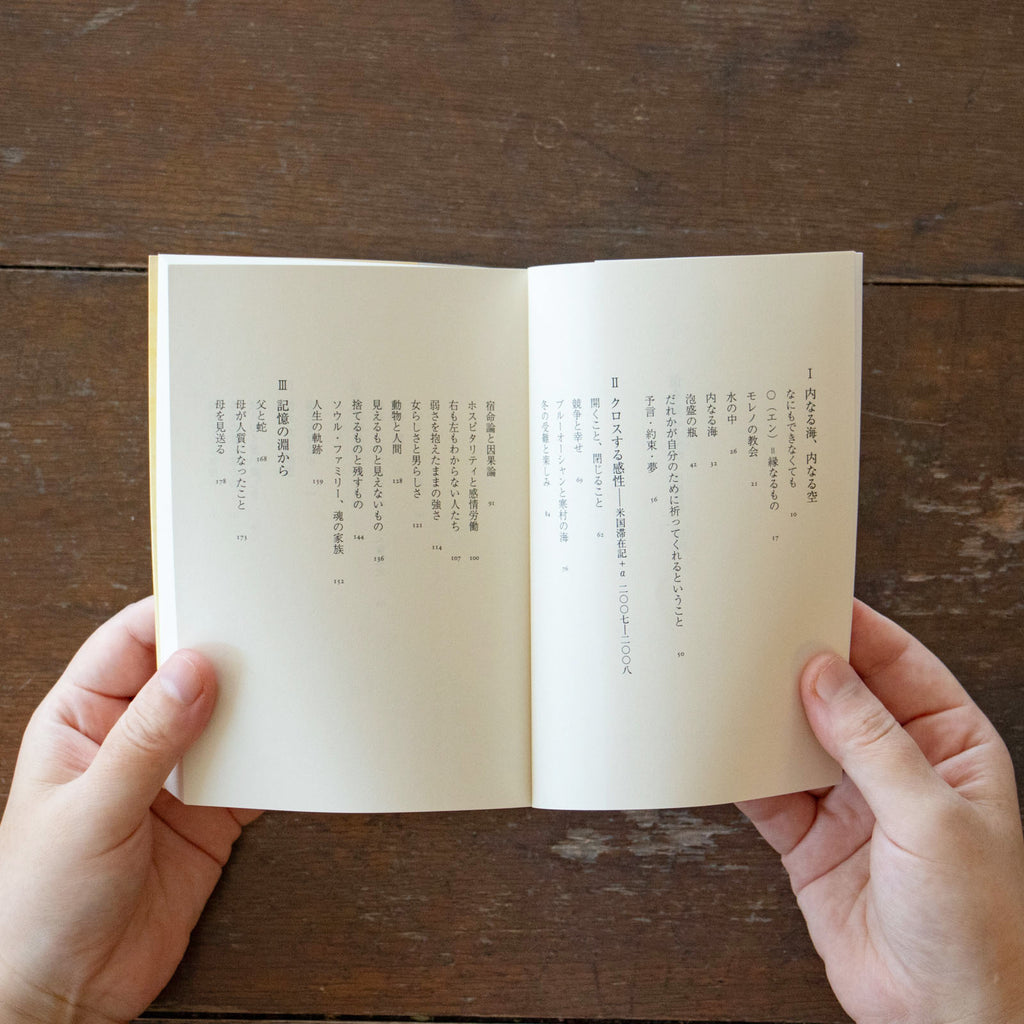 Ⅰ 内なる海、内なる空
なにもできなくても 10
〇(エン)=縁なるもの 17
モレノの教会 21
水の中 26
内なる海 32
泡盛の瓶 42
だれかが自分のために祈ってくれるということ 50
予言・約束・夢 56
Ⅱ クロスする感性——米国滞在記+α 二〇〇七—二〇〇八
開くこと、閉じること 62
競争と幸せ 69
ブルーオーシャンと寒村の海 76
冬の受難と楽しみ 84
宿命論と因果論 91
ホスピタリティと感情労働 100
右も左もわからない人たち 107
弱さを抱えたままの強さ 114
女らしさと男らしさ 121
動物と人間 128
見えるものと見えないもの 136
捨てるものと残すもの 144
ソウル・ファミリー、魂の家族 152
人生の軌跡 159
Ⅲ 記憶の淵から
父と蛇 168
母が人質になったこと 173
母を見送る 178